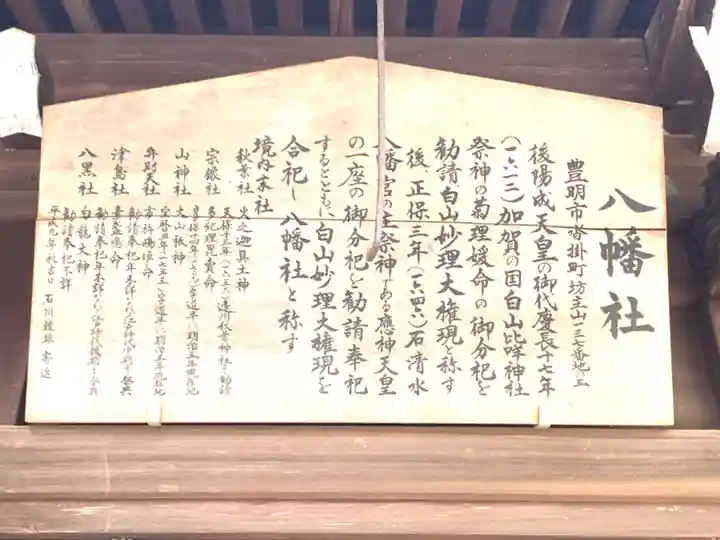 八幡社
豊明市沓掛町坊主山一三七番地の三
後陽成天皇の御代慶長十七年
(一六一二)加賀の国白山比咩神社
祭神の菊理媛命の御分祀を
勧請、白山妙理大権現と称す
後、正保三年(一六四六)石清水
八幡宮の主祭神である應神天皇
の一座の御分祀を勧請奉祀
するとともに、白山妙理大権現を
合祀し八幡社と称す
境内末社
秋葉社 火之迦具土神
天保
宗像社 多紀理毘賣命
山神社 大山祇神
弁財天社 市杵嶋姫命
勧請奉祀年
津島社 素盞鳴命
勧請奉祀年
八黒社 白龍大神
勧請奉祀不詳
平成九年秋吉日 石川 寄進